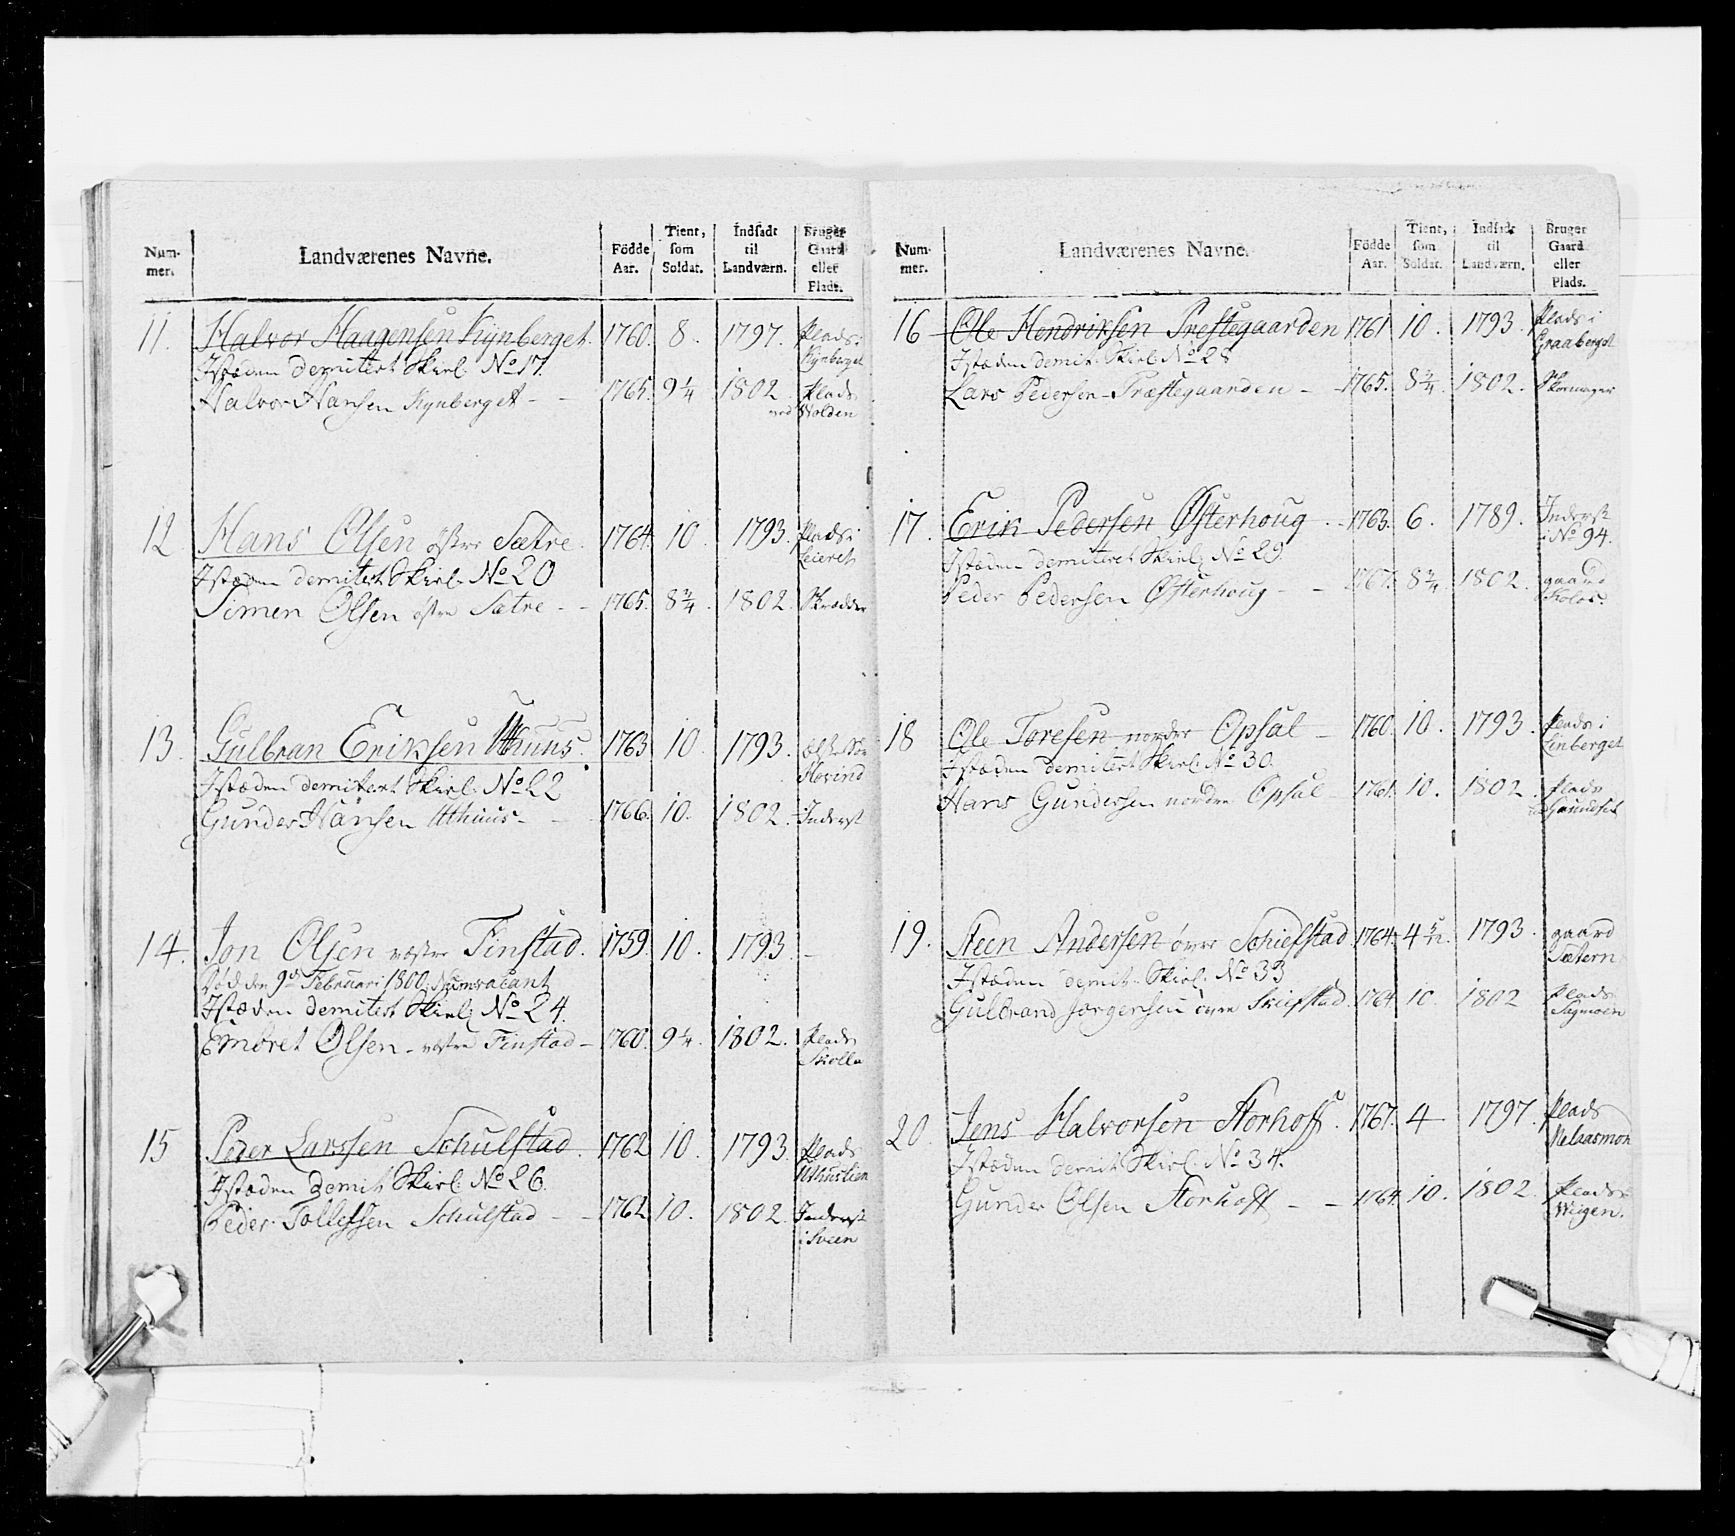 Num-mer. Landværenes Navne. Födde Aar. Tient, som Soldat. Indsadt til Landværn. Bruger Gaard eller Plads.
11. Halvor Haagensen Kynberget. 1760. 8. 1797. Plads i Kynberget
Istæden demitert Skirl. No 17.
Halvor Hansen Kynberget - - 1765. 9 1/4 1802. Plads ved Volden
12. Hans Olsen østre Sætre. 1764. 10. 1793. Plads i Leieret
Istæden demitert Skirl. No 20
Simen Olsen østre Sætre - - 1765. 8 3/4. 1802. Skrædder
13. Gulbran Eriksen Uthuus. 1763 10. 1793. Hovind
Istæden demitert Skirl. No 22
Gunder Hansen Uthuus - - 1766. 10. 1802. Inderst
14. Jon Olsen vestre Finstad. 1759. 10. 1793. -
Død den 9de Februari 1800. Num vacant
Istæden demitert Skirl. No 24.
Embret Olsen - vestre Finstad - 1760. 9 1/4. 1802. Plads
15 Peder Larssen Schulstad. 1762 10. 1793. Plads Uthuslien
Istæden demit. Skirl. No 26.
Peder Tollefsen Schulstad - - 1762 10. 1802. Inderst i Sveen
Num-mer. Landværenes Navne. Födde Aar. Tient, som Soldat. Indsadt til Landværn. Bruger Gaard eller Plads.
16 Ole Hendriksen Prestegaarden 1761 10. 1793. Plads i Graaberget
Istæden demit. Skirl. No 28
Lars Pedersen - Præstegaarden - 1765. 8 3/4. 1802. Skoemager
17. Erik Pedersen Østerhoug. - 1763. 6. 1789. Inderst i No 94.
Istæden demitert Skirl. No 29.
Peder Pedersen Østerhoug - - 1767. 8 3/4. 1802. gaard
18 Ole Toresen nordre Opsal - 1760. 10. 1793. Plads i Linberget
Istæden demitert Skirl. No 30.
Hans Gundersen nordre Opsal - 1761. 10. 1802. Plads
19. Steen Andersen øvre Schiefstad 1764. 4 1793. gaard Sætern
Istæden demit. Skirl. No 33
Gulbrand Jørgensen øvre Skiefstad. 1764 10. 1802 Plads Sagmoen
20. Jens Halvorsen Storhoff. 1767. 4 1797. Plads
Istæden demit. Skirl. No 34.
Gunder Olsen Storhoff - - 1764. 10. 1802. Plads Weigen.